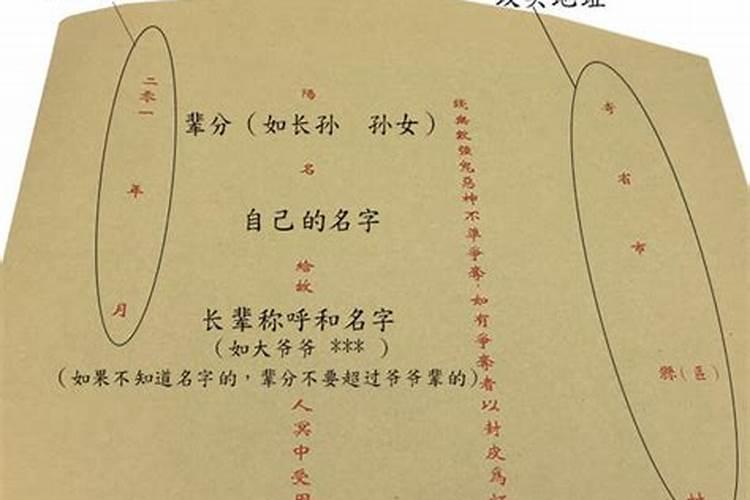 地址
寄 省 市 縣(區) 村
錢無数強鬼惡神不準爭奪,如有爭奪者以封皮爲
陽
辈分（如长孙 孙女）
名
自己的名字
給故
长辈称呼和名字
（如大爷爷 *** ）
（如果不知道名字的，辈分不要超过爷爷辈的）
人冥中受用
二零一 年 月